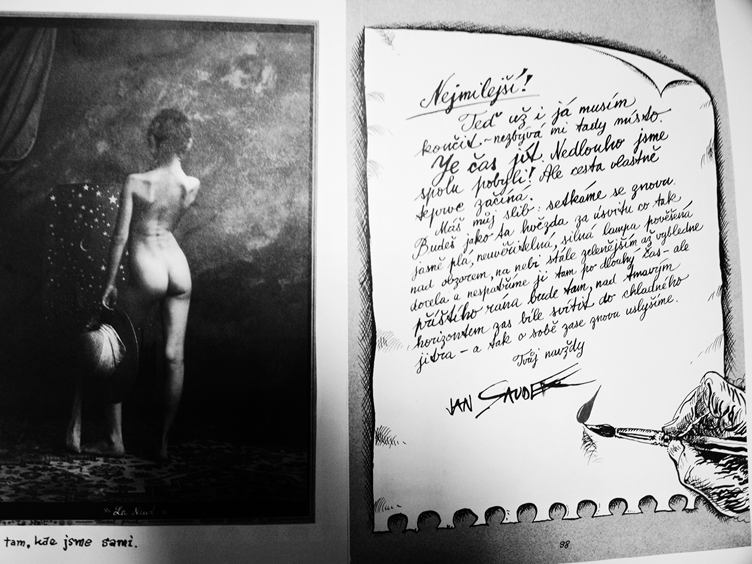 "La Nuit"
tam, kde jsme sami.
Nejmilejší!
Teď už i já musím
končit - nezbývá mi tady místo.
Je čas jít. Nedlouho jsme
spolu pobyli! Ale cesta vlastně
teprve začíná!
Máš můj slib: setkáme se znovu.
Budeš jako ta hvězda za úsvitu co tak
jasně plá, neuvěřitelná, silná lampa pověšená
nad obzorem, na nebi stále zelenějším až vybledne
docela a nespatříme ji tam po dlouhý čas - ale
příštího rána bude tam, nad tmavým
horizontem zas bíle svítit do chladného
jitra - a tak o sobě zase znovu uslyšíme.
Tvůj navždy
JAN SAUDEK
98